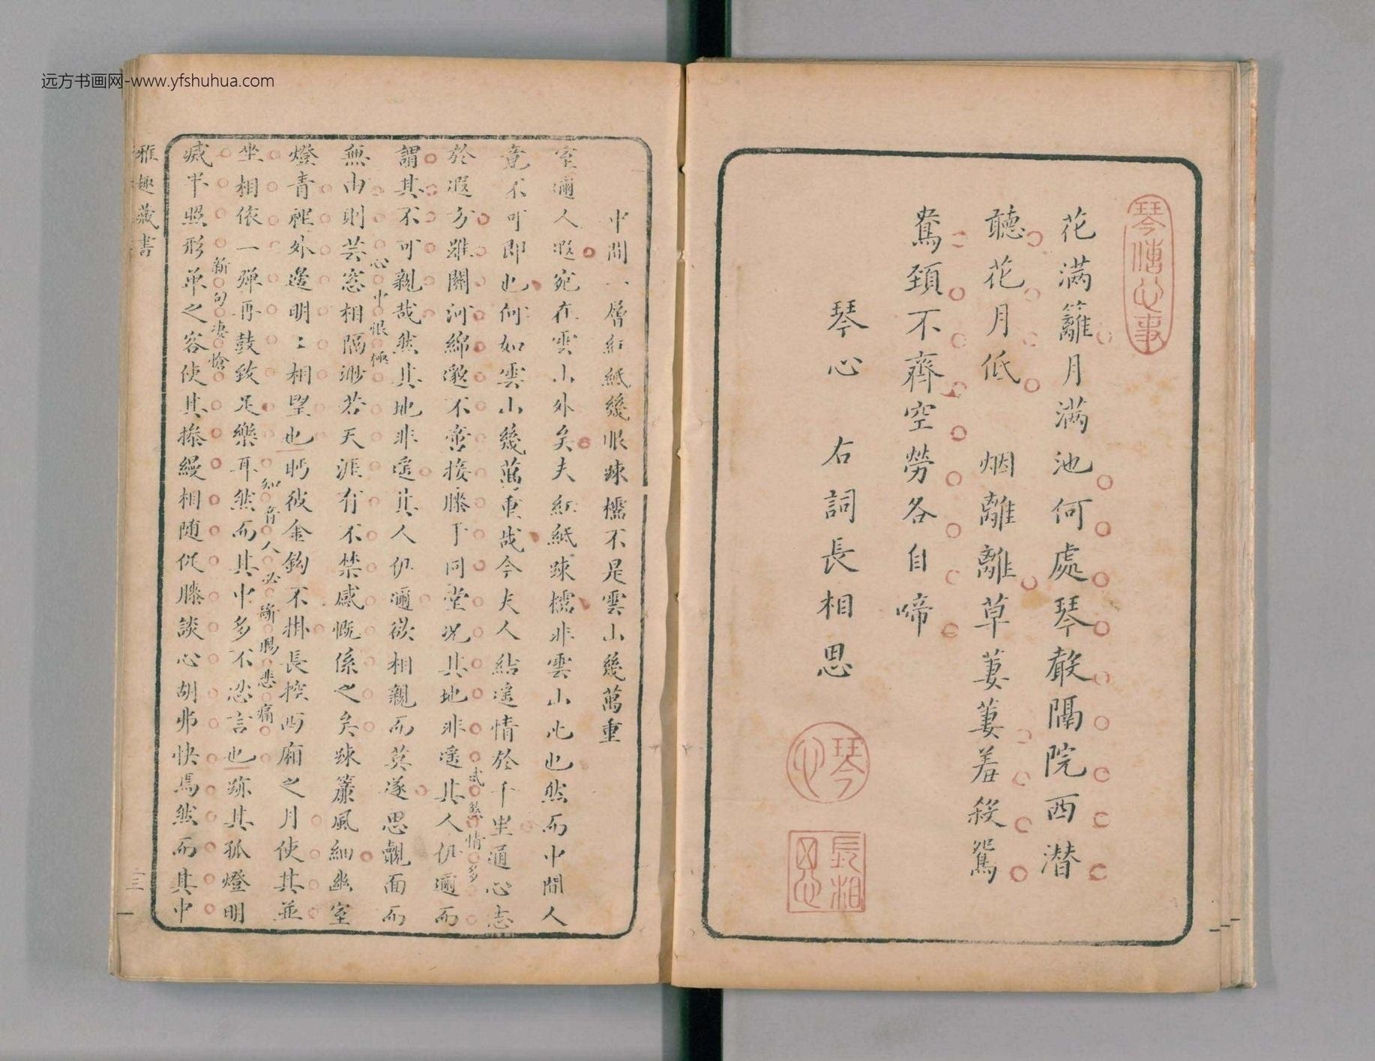 远方书画网-www.yfshuhua.com
琴傳心事
花滿籬月滿池何處琴聲隔院西潛
聽花月低　烟離離草萋萋羞殺鴛
鴦頸不齊空勞各自啼
琴心　右詞長相思
琴心
長相思
中間一層紅紙幾眼疎櫺不是雲山幾萬重
室邇人遐宛在雲山外矣夫紅紙疎櫺非雲山比也然而中間人
竟不可即也何如雲山幾萬重哉今夫人結遙情於千里通心志
於遐方雖關河綿邈不啻接膝于同堂况其地非遙其人仍邇而
謂其不可親哉然其地非遙其人仍邇欲相親而莫遂思覿面而
無由則芸窓相隔渺若天涯有不禁感慨係之矣疎簾風細幽室
燈青裡外邊明〻相望也眄彼金鈎不掛長控西廂之月使其並
坐相依一彈再鼓致足樂耳然而其中多不忍言也跡其孤燈明
滅半照形单之客使其捧縵相随促膝談心胡弗快焉然而其中
情多
心中恨極
知音人必斷腸悲痛
新句凄愴
雅趣藏書
三